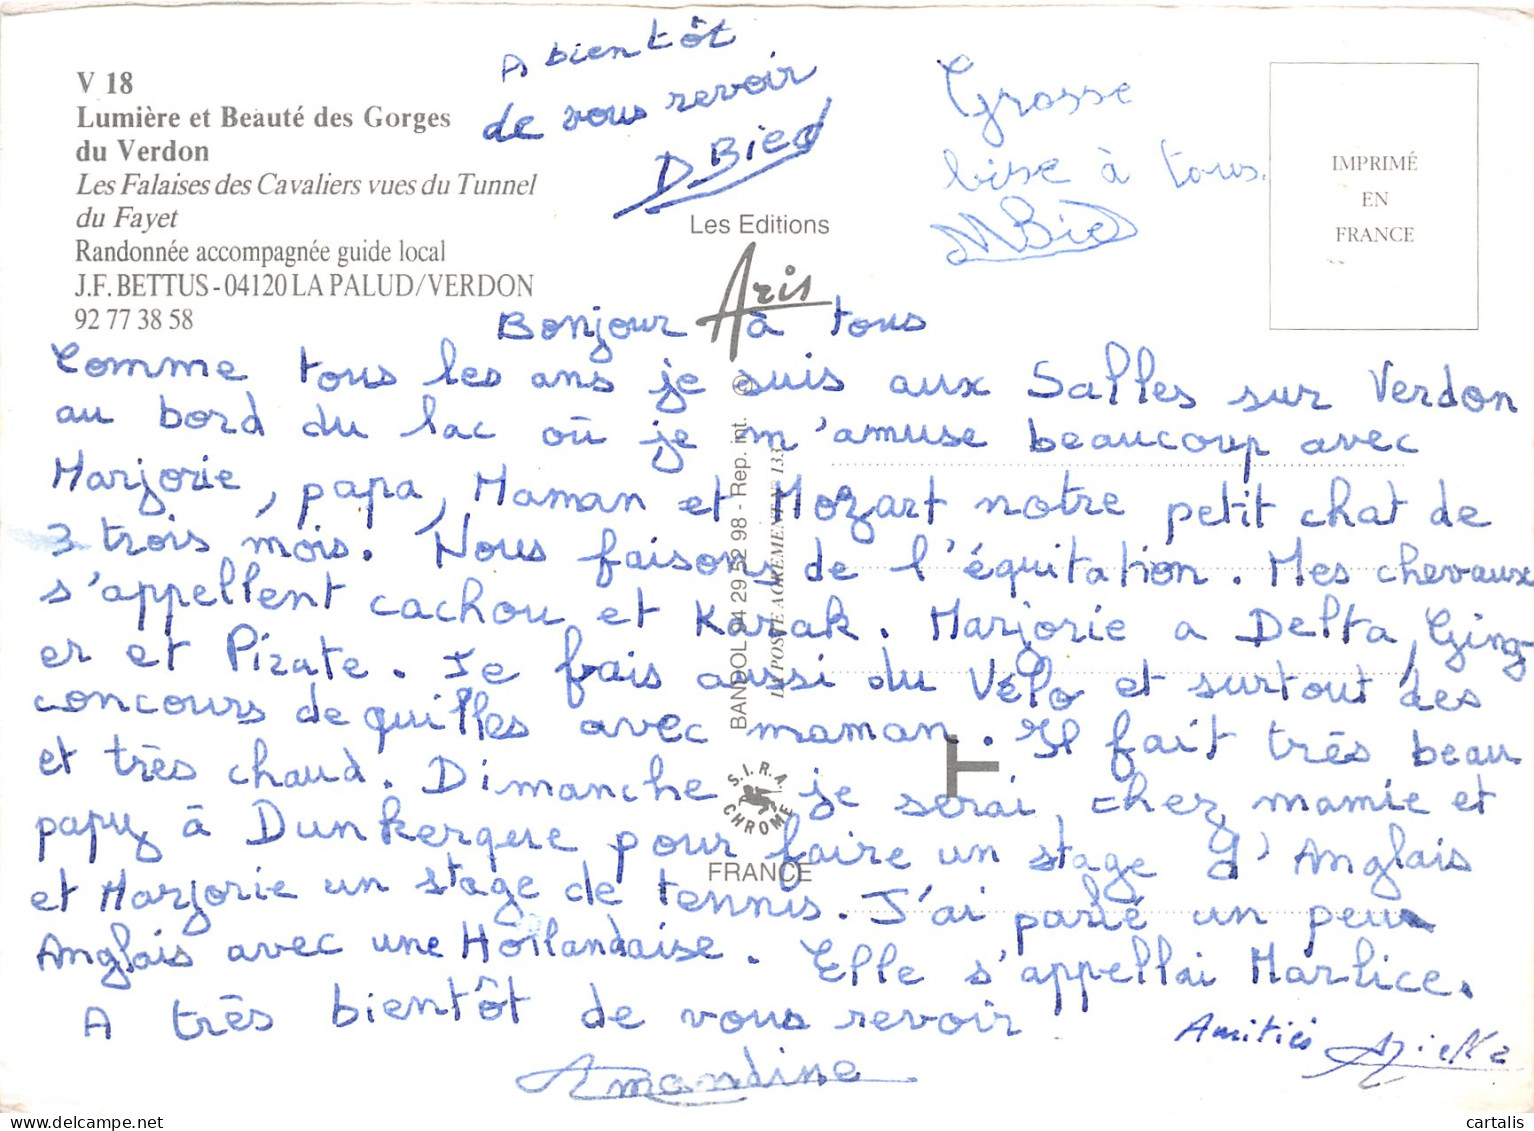 V 18
Lumière et Beauté des Gorges
du Verdon
Les Falaises des Cavaliers vues du Tunnel
du Fayet
Randonnée accompagnée guide local
J.F. BETTUS - 04120 LA PALUD/VERDON
92 77 38 58
A bientôt
de vous revoir
D Bied
Grosse
bise à tous.
M Bied
IMPRIMÉ
EN
FRANCE
Les Editions
Aris
BANDOL 94 29 52 98 - Rep. int. ©
LA POSTE AGREMENT N° 133
S.I.R.A.
CHROME
FRANCE
Bonjour à tous
Comme tous les ans je suis aux Salles sur Verdon
au bord du lac où je m'amuse beaucoup avec
Marjorie, papa, Maman et Mozart notre petit chat de
3 trois mois. Nous faisons de l'équitation. Mes chevaux
s'appellent cachou et Karak. Marjorie a Delta, Ging-
er et Pirate. Je fais aussi du Vélo et surtout des
concours de quilles avec maman. Il fait très beau
et très chaud. Dimanche je serai chez mamie et
papy à Dunkerque pour faire un stage d'Anglais
et Marjorie un stage de tennis. J'ai parlé un peu
Anglais avec une Hollandaise. Elle s'appellai Marlice.
A très bientôt de vous revoir
Amandine
Amitiés